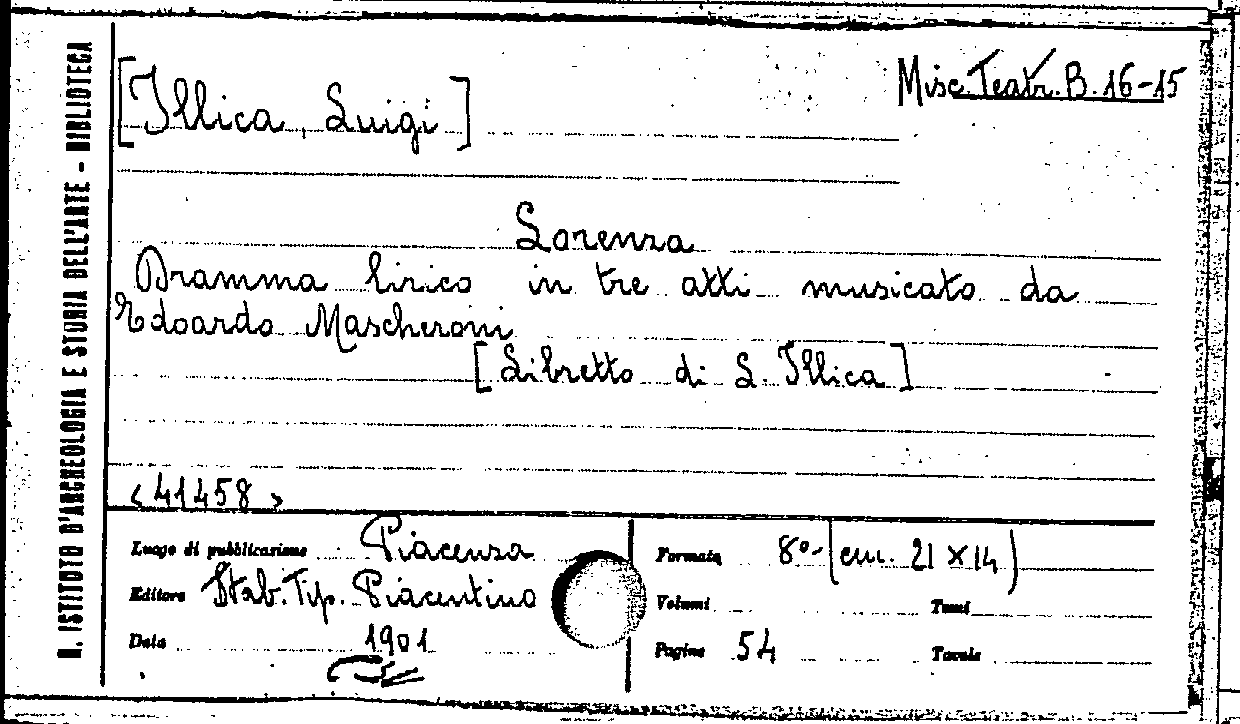 R. ISTITUTO D'ARCHEOLOGIA E STORIA DELL'ARTE - BIBLIOTECA
Misc. Teatr. B. 16-15
[Illica, Luigi]
Lorenza
Dramma lirico in tre atti musicato da
Edoardo Mascheroni
[Libretto di L. Illica]
<41458>
Luogo di pubblicazione Piacenza
Editore Stab. Tip. Piacentino
Data 1901
Formato 8º - (cm. 21 x 14)
Volumi Tomi
Pagine 54 Tavole